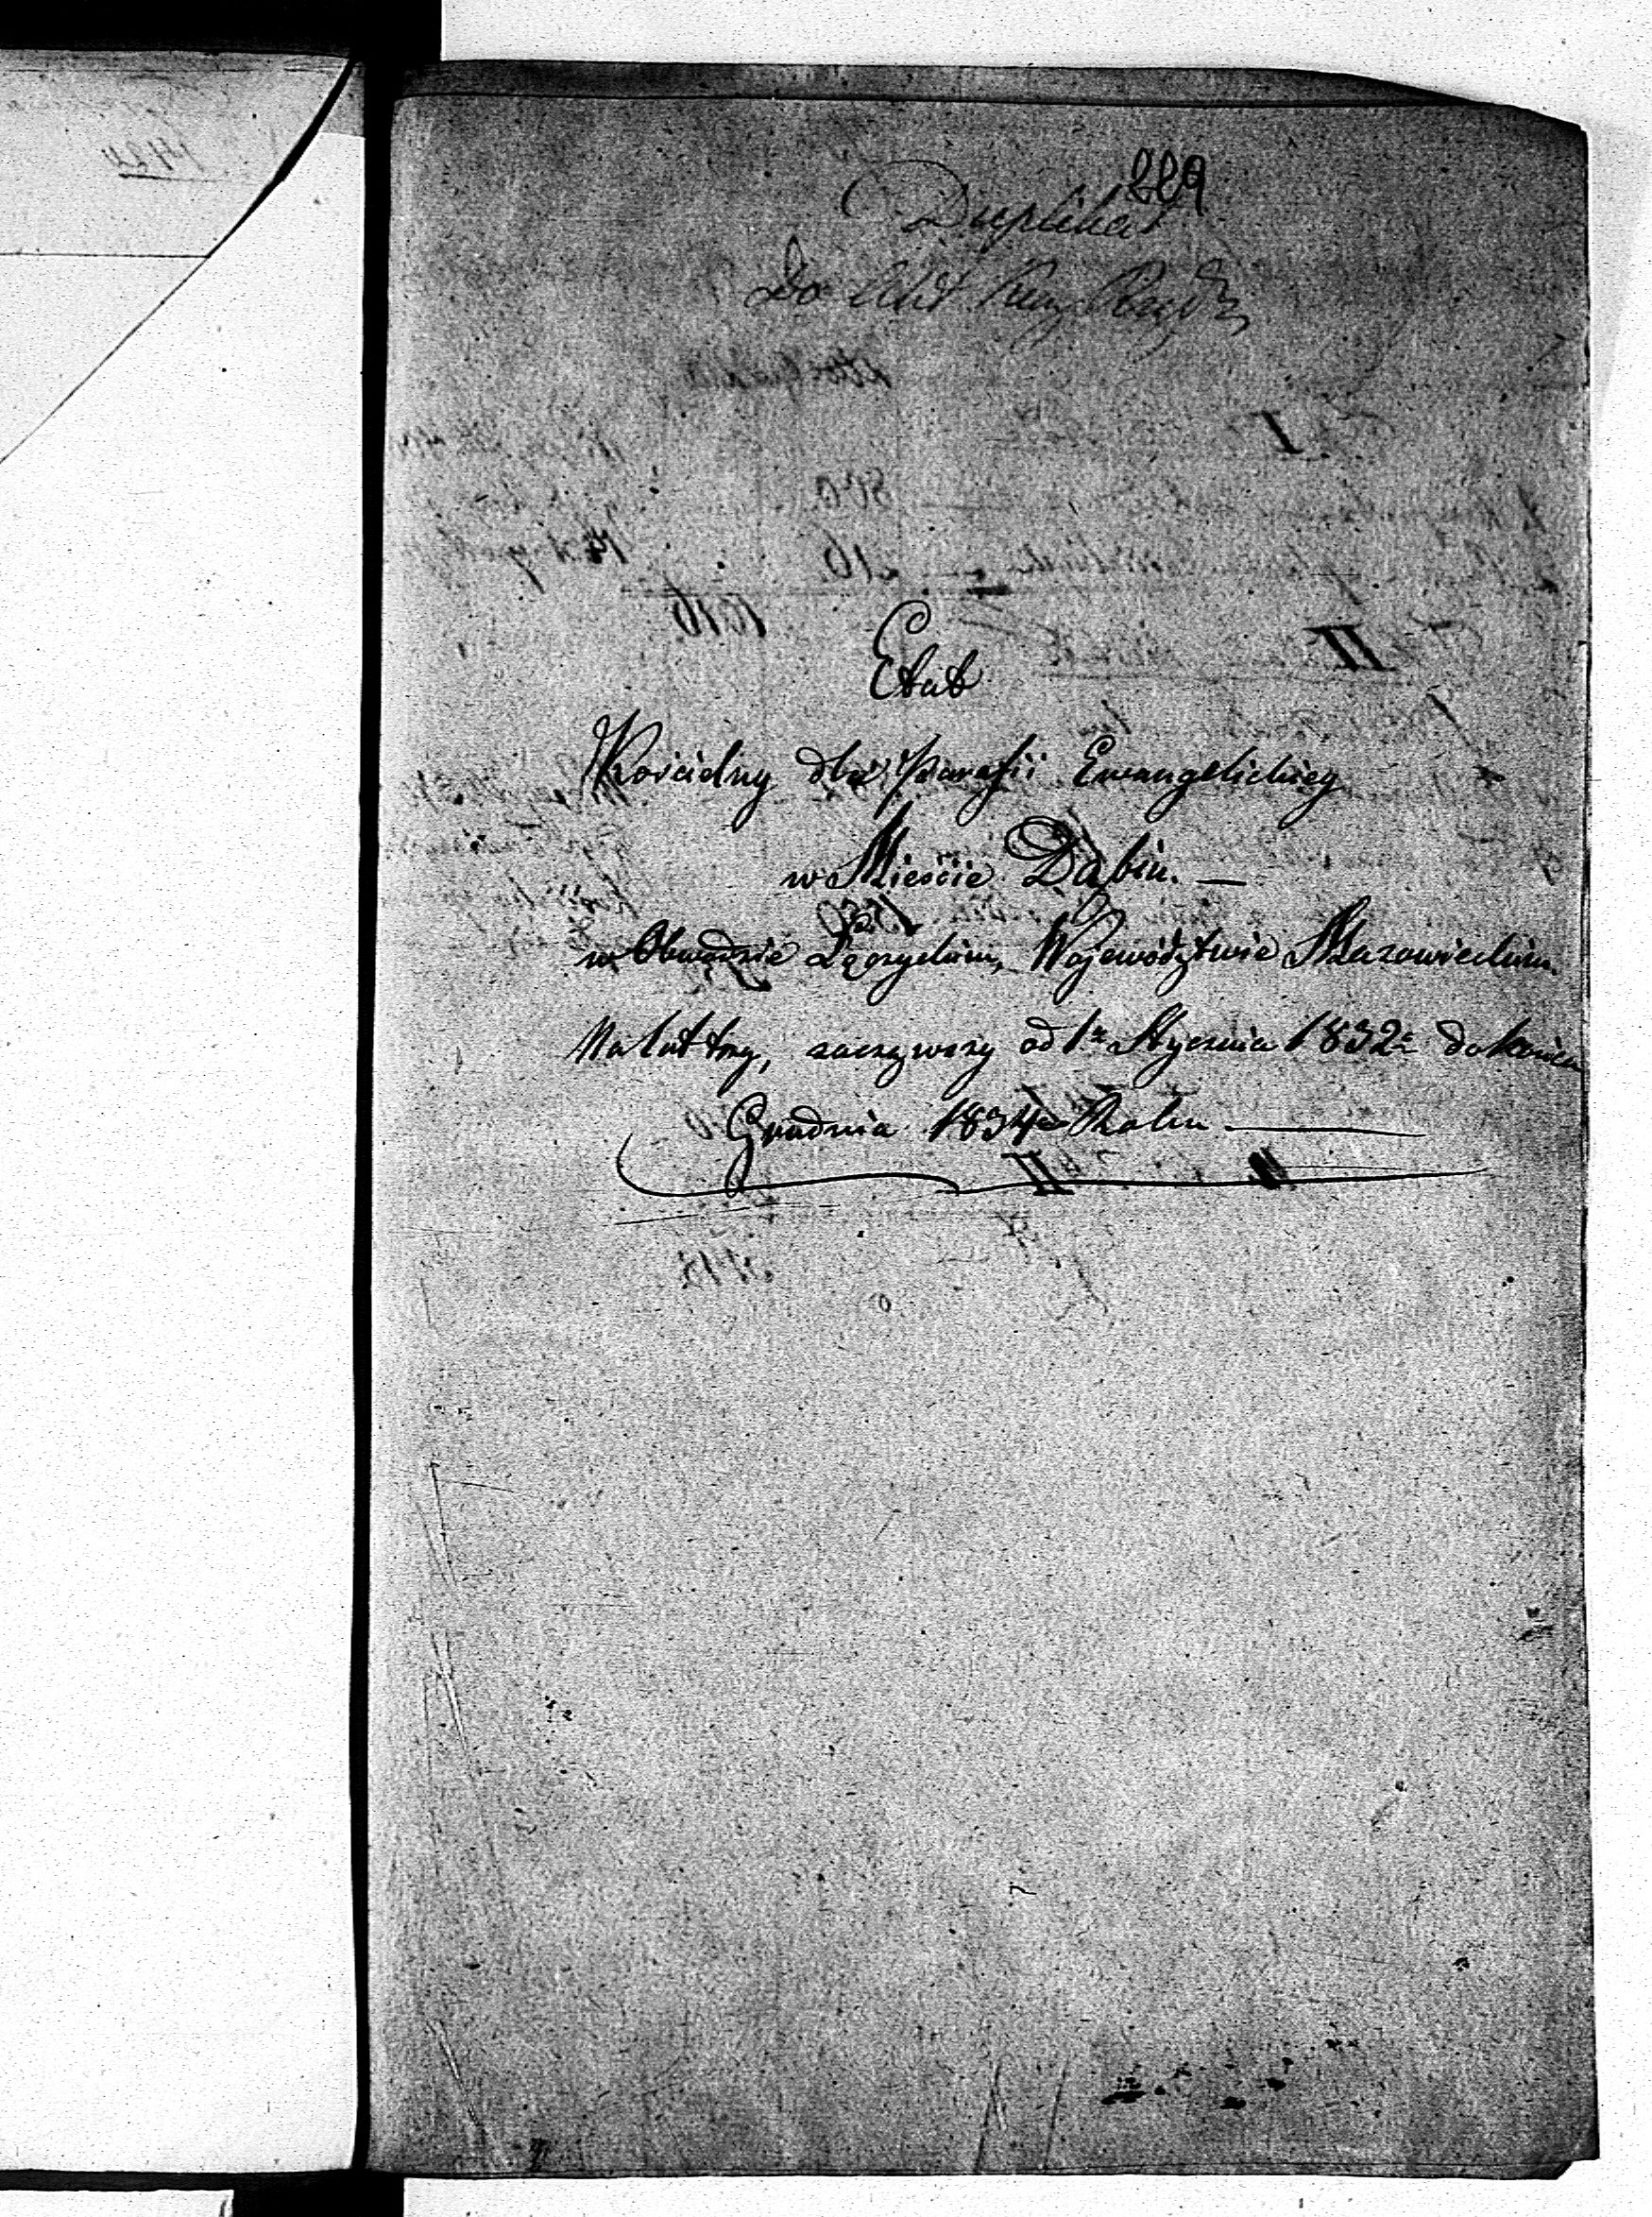 229
Duplikat
Do Akt
Etat
Kościelny dla Parafii Ewangelickiey
w Mieście Dąbiu. —
w Obwodzie Łęczyckim, Województwie Mazowieckim.
Na lat trzy, zacząwszy od 1go Stycznia 1832o do końca
Grudnia 1834go Roku —